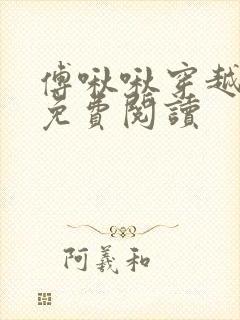 傅啾啾穿越
免費閱讀
阿義和